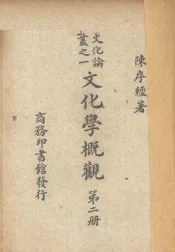 陳序經著
文化論叢之一
文化學概觀
第二冊
商務印書館發行